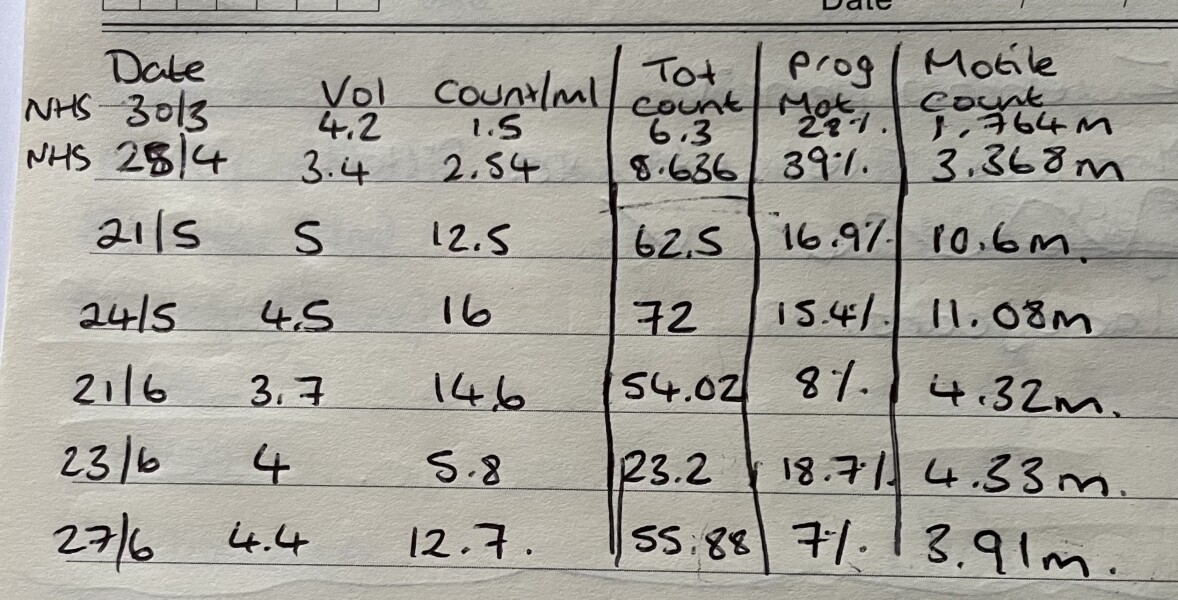 Date / /
Date Vol Count/ml Tot count Prog Mot. Motile count
NHS 30/3 4.2 1.5 6.3 28%. 1.764m
NHS 28/4 3.4 2.54 8.636 39%. 3.368m
21/5 5 12.5 62.5 16.9% 10.6m.
24/5 4.5 16 72 15.4%. 11.08m
21/6 3.7 14.6 54.02 8%. 4.32m.
23/6 4 5.8 23.2 18.7% 4.33m.
27/6 4.4 12.7. 55.88 7%. 3.91m.